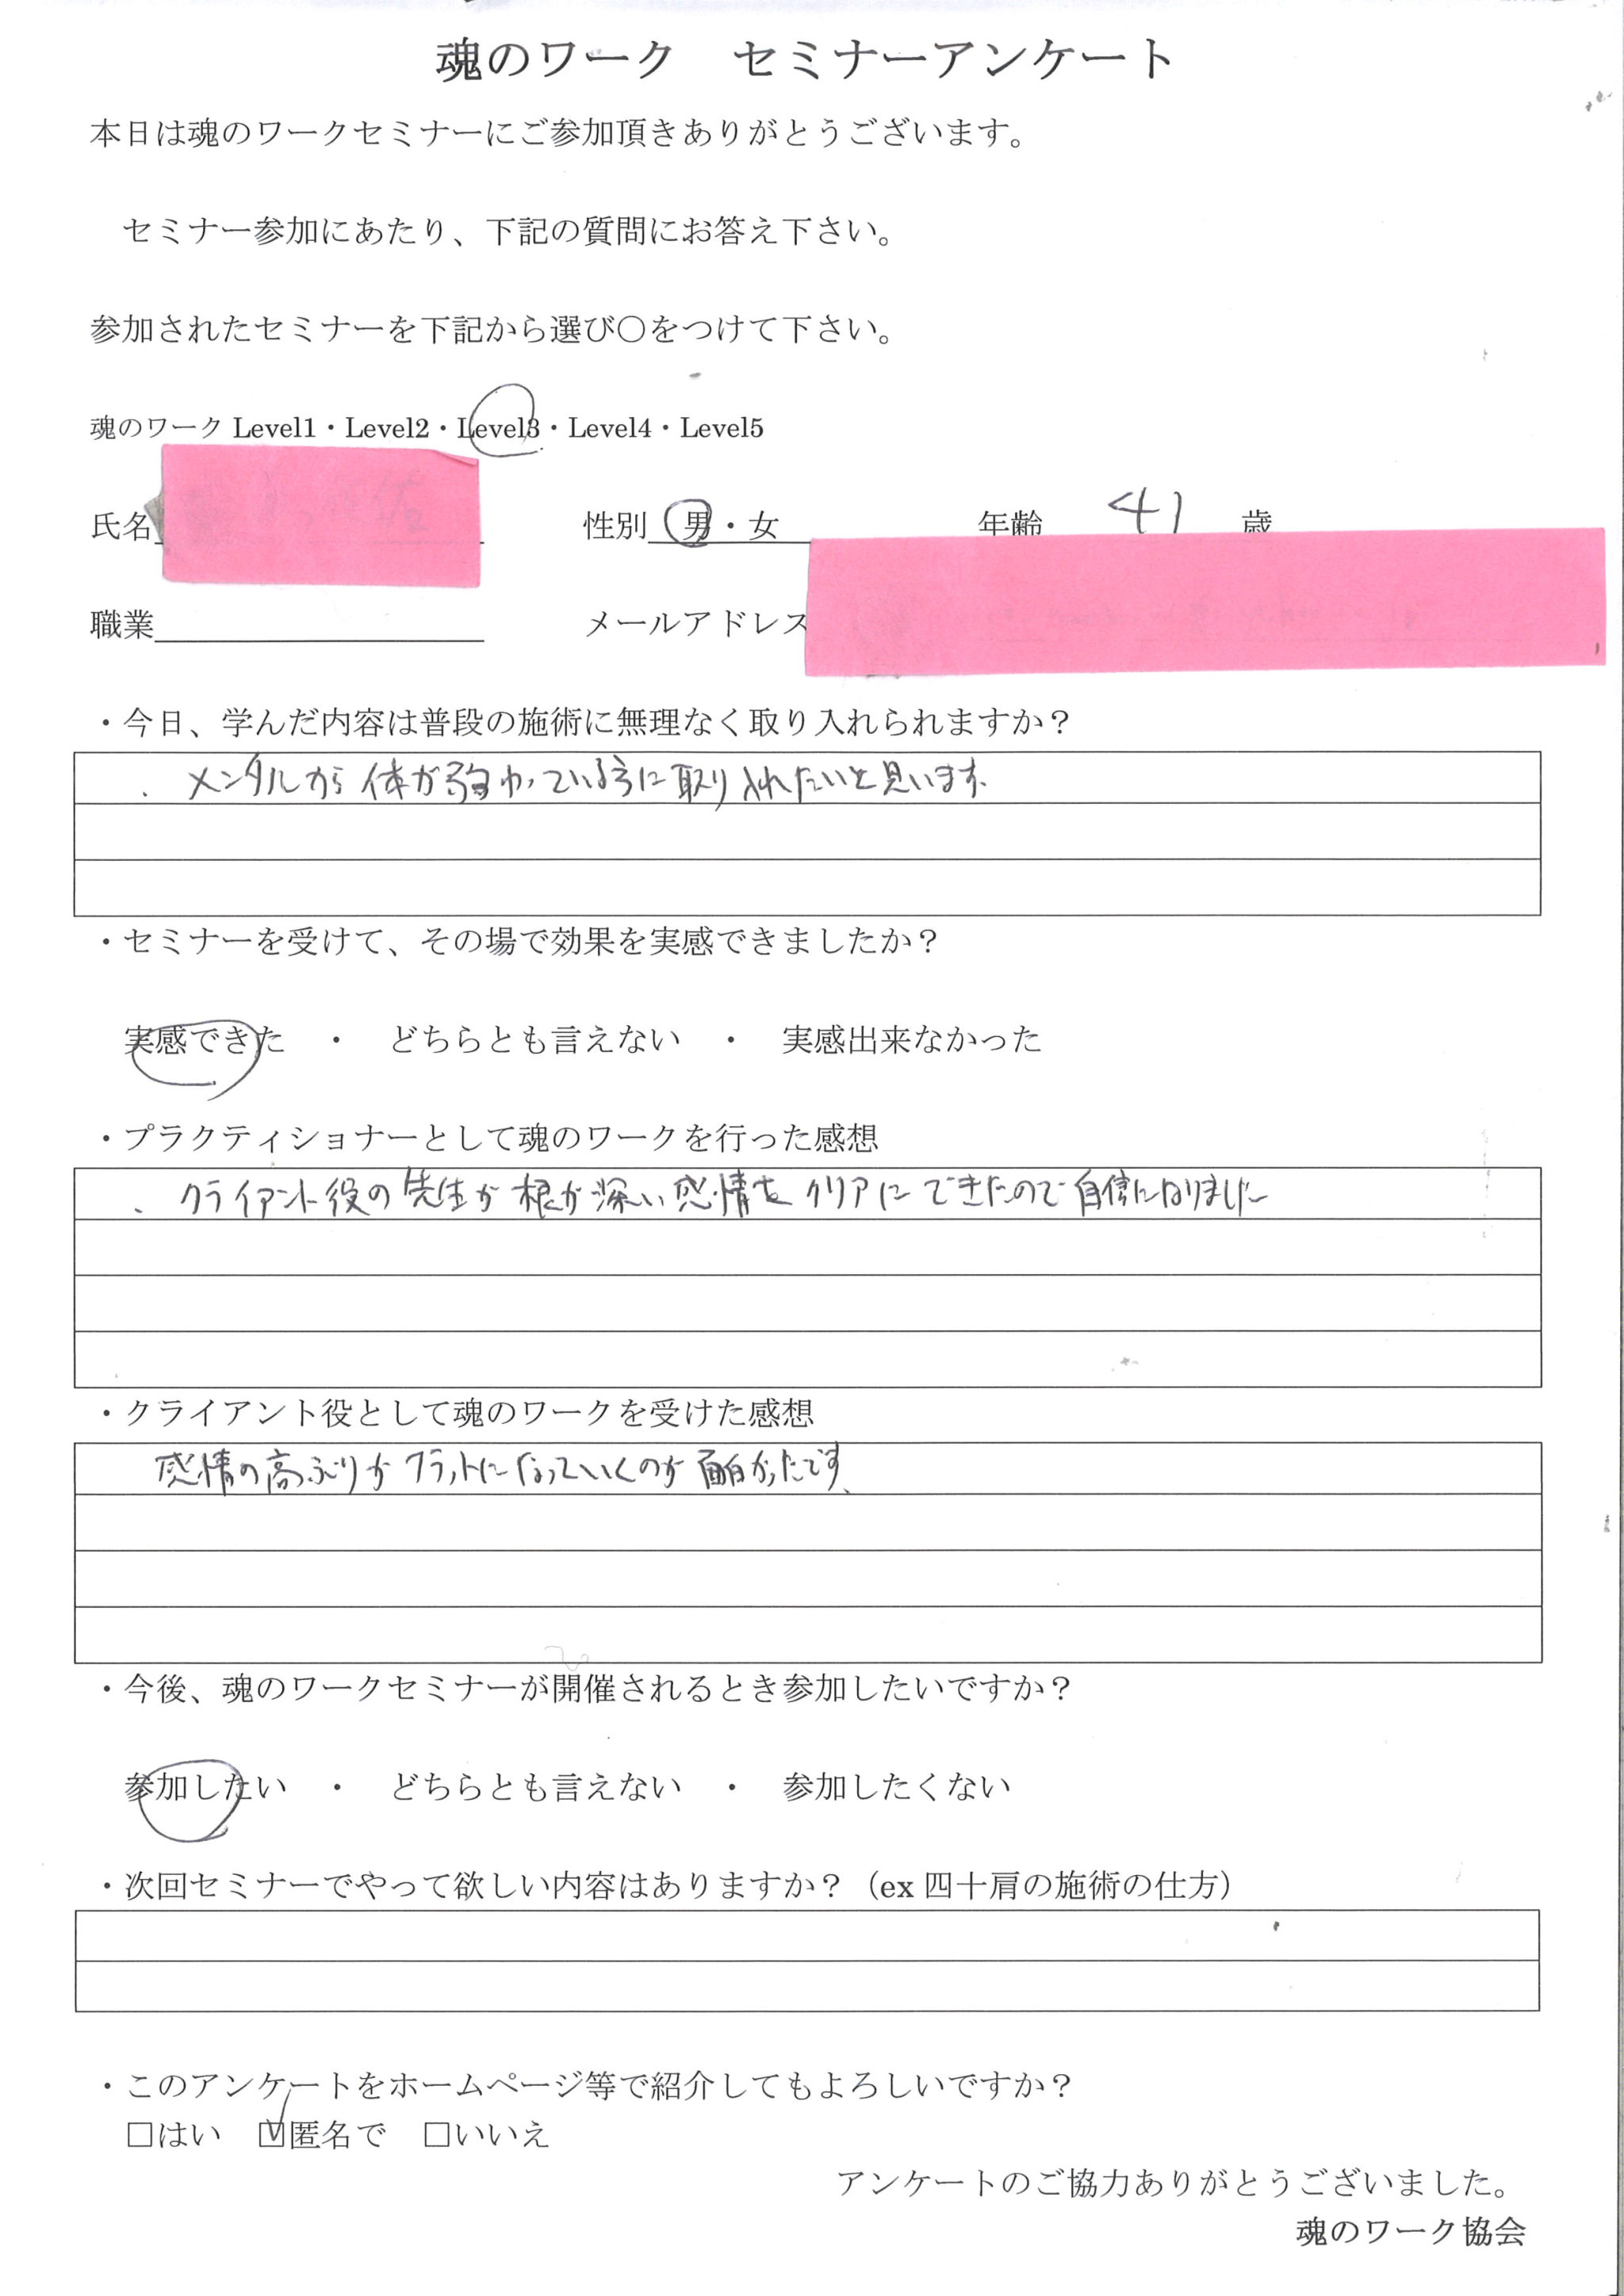 魂のワーク　セミナーアンケート
本日は魂のワークセミナーにご参加頂きありがとうございます。
セミナー参加にあたり、下記の質問にお答え下さい。
参加されたセミナーを下記から選び〇をつけて下さい。
魂のワーク Level1・Level2・Level3・Level4・Level5
氏名　性別　男・女　年齢　41　歳
職業　メールアドレス
・今日、学んだ内容は普段の施術に無理なく取り入れられますか？
メンタルから体が弱わっている方に取り入れたいと思います。
・セミナーを受けて、その場で効果を実感できましたか？
実感できた　・　どちらとも言えない　・　実感出来なかった
・プラクティショナーとして魂のワークを行った感想
クライアント役の先生が根が深い感情をクリアにできたので自信になりました
・クライアント役として魂のワークを受けた感想
感情の高ぶりがフラットになっていくのが面白かったです。
・今後、魂のワークセミナーが開催されるとき参加したいですか？
参加したい　・　どちらとも言えない　・　参加したくない
・次回セミナーでやって欲しい内容はありますか？（ex 四十肩の施術の仕方）
・このアンケートをホームページ等で紹介してもよろしいですか？
□はい　☑匿名で　□いいえ
アンケートのご協力ありがとうございました。
魂のワーク協会